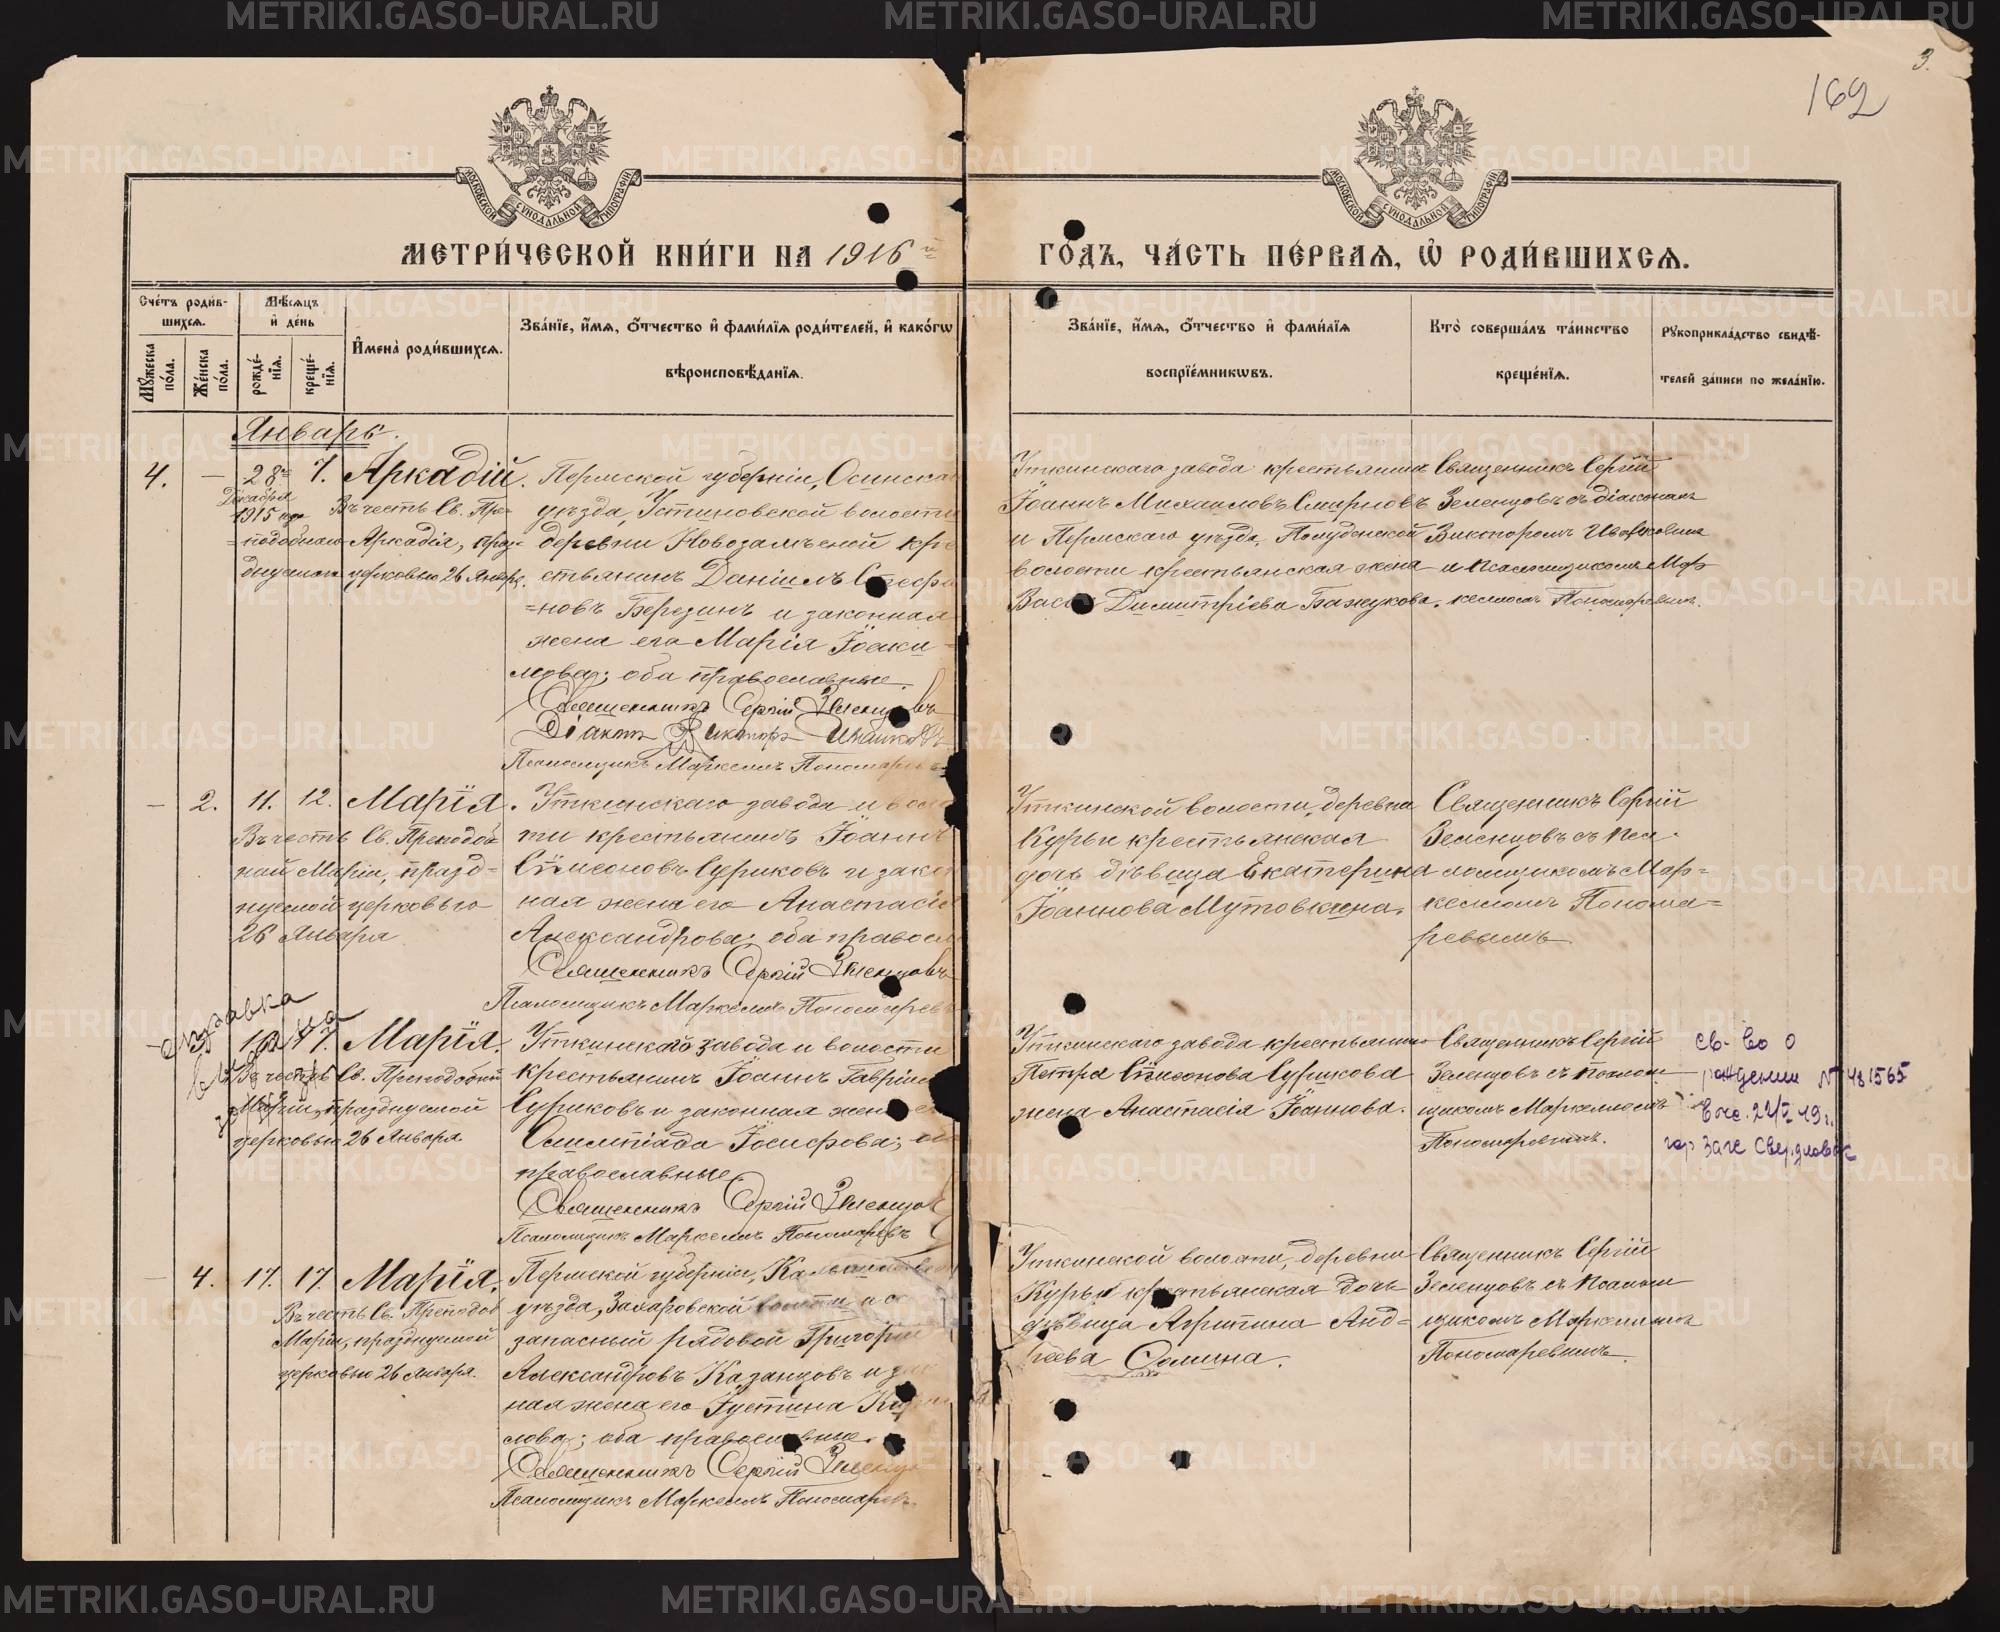 3.
162
МОСКОВСКОЙ СѴНОДАЛЬНОЙ ТИПОГРАФІИ
МОСКОВСКОЙ СѴНОДАЛЬНОЙ ТИПОГРАФІИ
МЕТРИ́ЧЕСКОЙ КНИ́ГИ НА 1916 й
ГО́ДЪ, ЧА́СТЬ ПЕ́РВАЯ, Ѽ РОДИ́ВШИХСЯ.
Сче́тъ роди́в-
шихся.
Мꙋ́жеска по́ла.
Же́нска по́ла.
Мѣ́сяцъ
и҆ де́нь
рожде́-
нїя.
креще́-
нїя.
И҆мена̀ роди́вшихся.
Зва́нїе, и҆́мя, ѻ҆́тчество и҆ фами́лїя роди́телей, и҆ како́гѡ
вѣроисповѣ́данїя.
Зва́нїе, и҆́мя, ѻ҆́тчество и҆ фами́лїя
воспрїе́мникѡвъ.
Кто̀ соверша́лъ та́инство
креще́нїя.
Рꙋкоприкла́дство свидѣ́-
телей за́писи по жела́нїю.
Январь.
4. — 28го 7. Аркадій.
Декабря
1915 года
Въ честь Св. Пре-
=подобнаго Аркадія, праз-
днуемаго церковью 26 Января.
Пермской губерніи, Осинска
уѣзда, Устиновской волости
деревни кре
стьянинъ Даніилъ Стефа
=новъ Березинъ и законная
жена его Марія Іоаки-
мова; оба православные.
Священникъ Сергій Зеленцовъ
Діаконъ Викторъ Ивашковъ
Псаломщикъ Маркеллъ Пономаревъ
Уткинскаго завода крестьянинъ
Іоаннъ Михаиловъ Смирновъ
и Пермскаго уѣзда, Полуденской
волости крестьянская жена
Васс Димитріева Бажукова.
Священникъ Сергій
Зеленцовъ съ діакономъ
Викторомъ Ивашковымъ
и псаломщикомъ Мар
келломъ Пономаревымъ.
— 2. 11. 12. Марія.
Въ честь Св. Преподоб
ной Маріи, празд-
нуемой церковью
26 Января
Уткинскаго завода и воло
ти крестьянинъ Іоаннъ
Сѵмеоновъ Суриковъ и закон
ная жена его Анастасія
Александрова; оба правосл
Священникъ Сергій Зеленцовъ
Псаломщикъ Маркеллъ Пономарев
Уткинской волости, деревни
Курьи крестьянская
дочь дѣвица Екатерина
Іоаннова Мутовкина.
Священникъ Сергій
Зеленцовъ съ пса-
ломщикомъ Мар=
келломъ Понома=
ревымъ
справка
выдана
3. 17. Марія.
Въ честь Св. Преподобной
Маріи, празднуемой
церковью 26 Января.
Уткинскаго завода и волости
крестьянинъ Іоаннъ Гавріил
Суриковъ и законная жена
Олимпіада Іосифова; об
православные.
Священникъ Сергій Зеленцов
Псаломщикъ Маркеллъ Пономаревъ
Уткинскаго завода крестьянина
Петра Сѵмеонова Сурикова
жена Анастасія Іоаннова.
Священникъ Сергій
Зеленцовъ съ псалом
щикомъ Маркелломъ
Пономаревымъ.
Св-во о
рождении № 481565
гор Загс Свердловск
— 4. 17. 17. Марія.
Въ честь Св. Преподоб
Маріи, празднуемой
церковью 26 Января.
Пермской губерніи,
уѣзда, Захаровской волости и с
запасный рядовой Григорій
Александровъ Казанцовъ и за
ная жена его Іустина
лова; оба православные.
Священникъ Сергій Зеленцо
Псаломщикъ Маркеллъ Пономаревъ
Уткинской волости, деревни
Курьи крестьянская дочь
дѣвица Агрипина Анд=
реева Сомина.
Священникъ Сергій
Зеленцовъ съ псалом
щикомъ Маркелломъ
Пономаревымъ.
METRIKI.GASO-URAL.RU